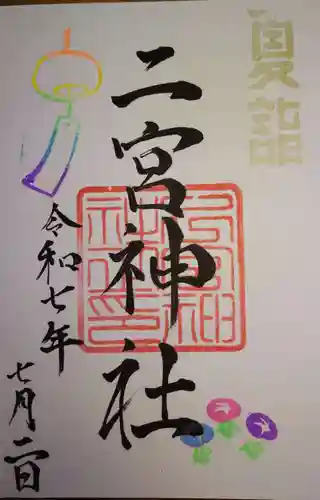 夏詣
二宮神社
令和七年
七月二日